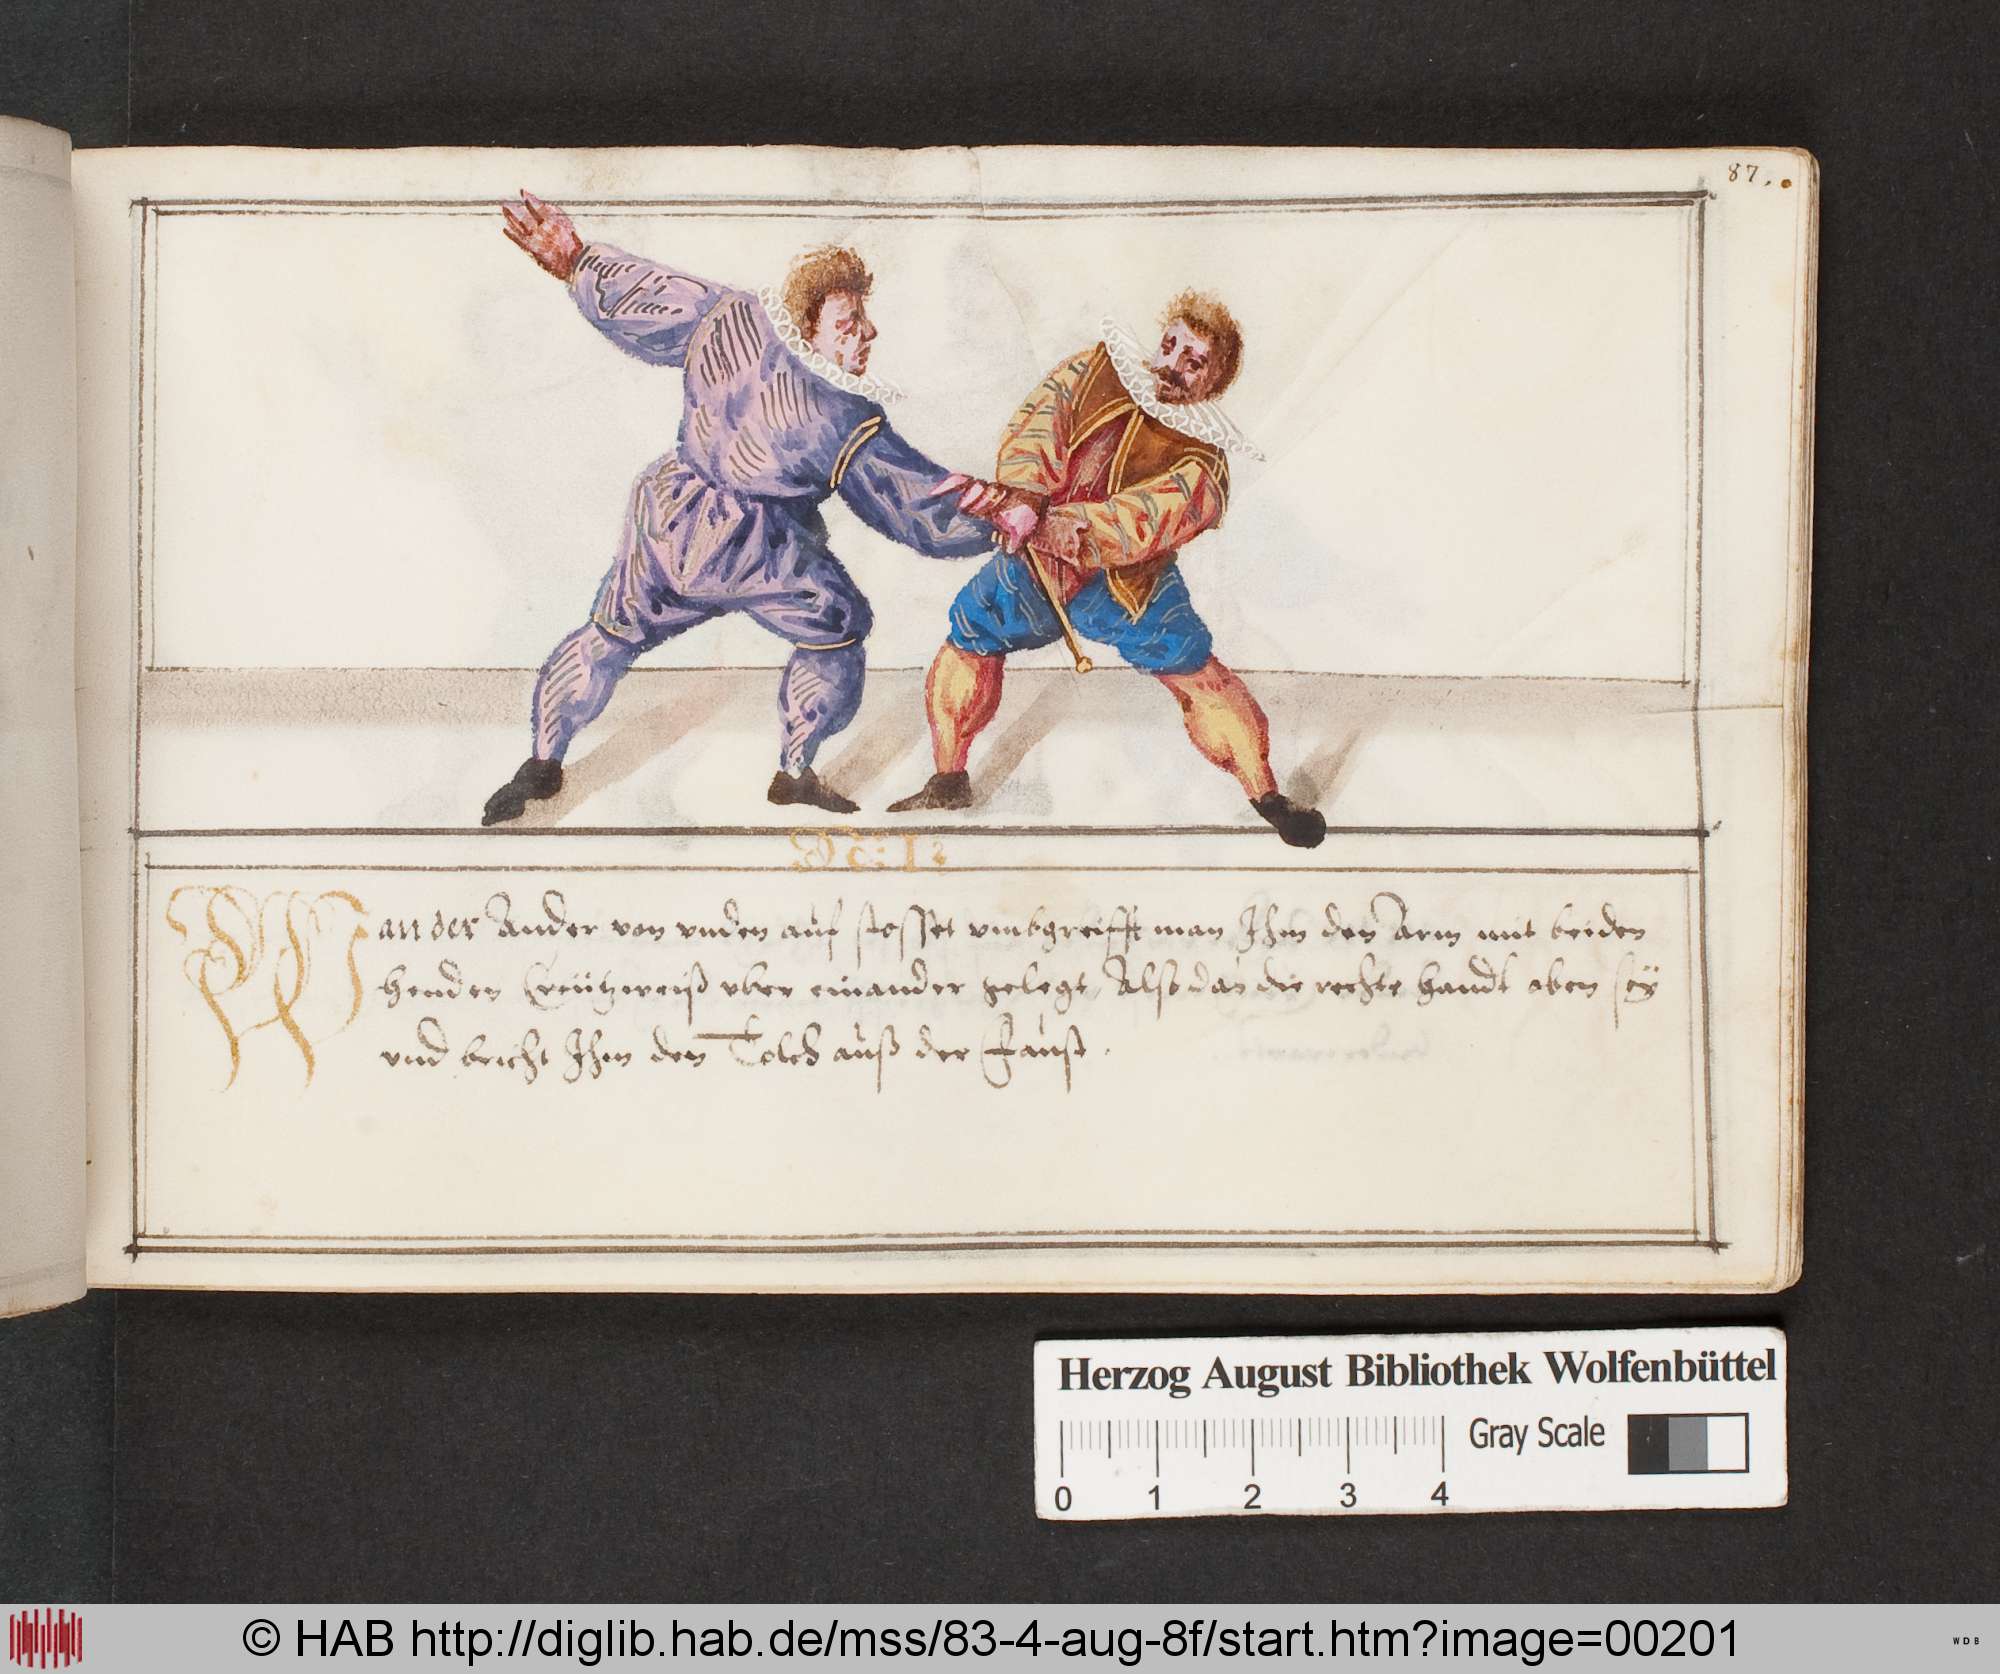 87.
No: 12
Wan der Ander von vnden auf stosset vmbgreifft man Ihm den Arm mit beiden
henden Creützweiß vber einander gelegt, Also das die rechte handt oben seÿ
vnd bricht Ihm den Tolch auß der Faust.
Herzog August Bibliothek Wolfenbüttel
Gray Scale
0 1 2 3 4
© HAB http://diglib.hab.de/mss/83-4-aug-8f/start.htm?image=00201
WDB